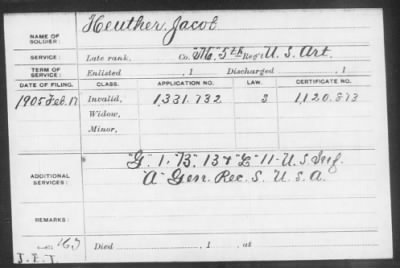 NAME OF SOLDIER: Heuther, Jacob
SERVICE: Late rank, Co. "M" 5th Reg't U.S. Art.
TERM OF SERVICE: Enlisted , 1 Discharged , 1
DATE OF FILING. CLASS. APPLICATION NO. LAW. CERTIFICATE NO.
1905 Feb. 17 Invalid, 1,331.732 3 1,120.873
Widow,
Minor,
ADDITIONAL SERVICES: "G" 1, "B" 13 & "L" 11 - U.S. Inf.
"A" Gen. Rec. S. U.S.A.
REMARKS:
Died , 1 , at